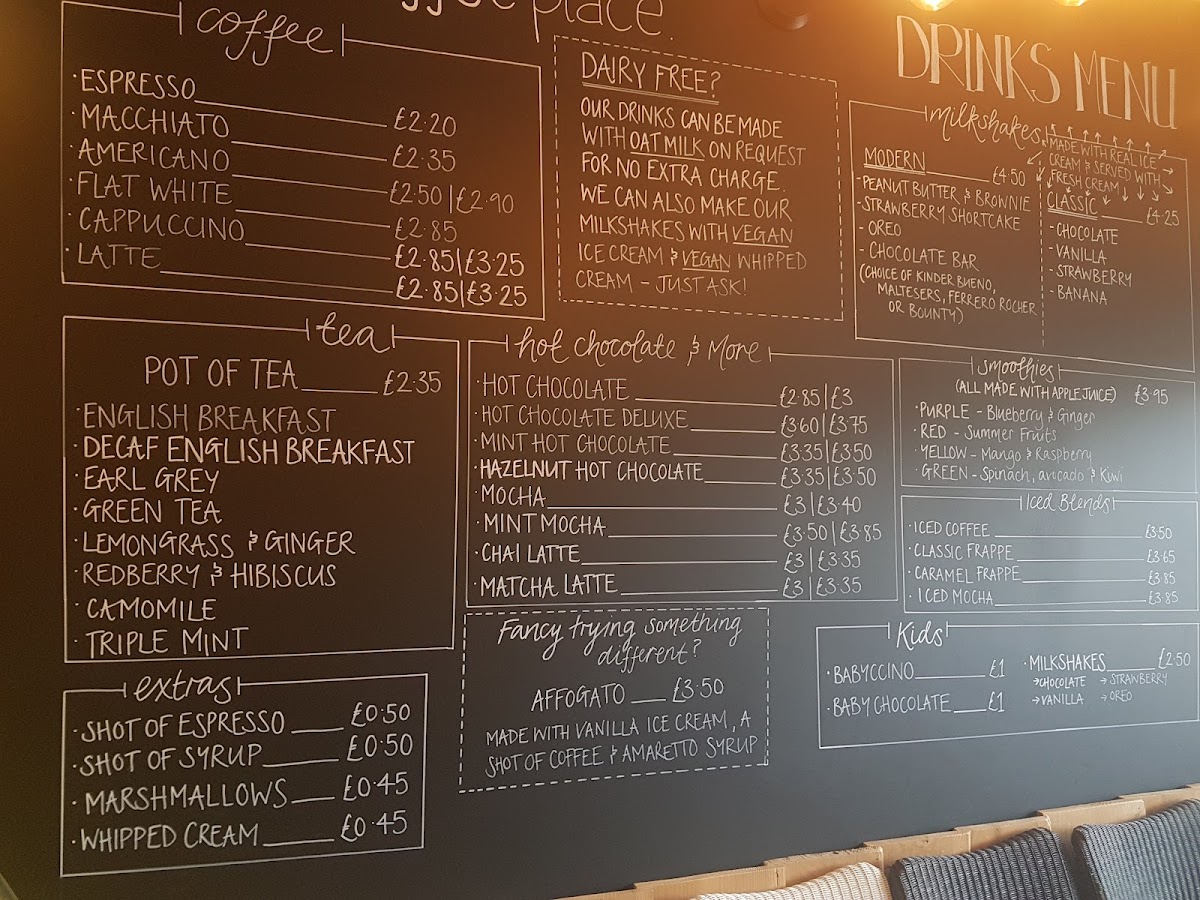 place.
DRINKS MENU
coffee
·ESPRESSO £2.20
·MACCHIATO £2.35
·AMERICANO £2.50|£2.90
·FLAT WHITE £2.85
·CAPPUCCINO £2.85|£3.25
·LATTE £2.85|£3.25
DAIRY FREE?
OUR DRINKS CAN BE MADE
WITH OAT MILK ON REQUEST
FOR NO EXTRA CHARGE.
WE CAN ALSO MAKE OUR
MILKSHAKES WITH VEGAN
ICE CREAM & VEGAN WHIPPED
CREAM - JUST ASK!
milkshakes
MADE WITH REAL ICE
CREAM & SERVED WITH
FRESH CREAM
MODERN £4.50
-PEANUT BUTTER & BROWNIE
-STRAWBERRY SHORTCAKE
- OREO
- CHOCOLATE BAR
(CHOICE OF KINDER BUENO,
MALTESERS, FERRERO ROCHER
OR BOUNTY)
CLASSIC £4.25
- CHOCOLATE
- VANILLA
- STRAWBERRY
- BANANA
tea
POT OF TEA £2.35
·ENGLISH BREAKFAST
·DECAF ENGLISH BREAKFAST
·EARL GREY
·GREEN TEA
·LEMONGRASS & GINGER
·REDBERRY & HIBISCUS
·CAMOMILE
·TRIPLE MINT
hot chocolate & More
·HOT CHOCOLATE £2.85|£3
·HOT CHOCOLATE DELUXE £3.60|£3.75
·MINT HOT CHOCOLATE £3.35|£3.50
·HAZELNUT HOT CHOCOLATE £3.35|£3.50
·MOCHA £3|£3.40
·MINT MOCHA £3.50|£3.85
·CHAI LATTE £3|£3.35
·MATCHA LATTE £3|£3.35
smoothies
(ALL MADE WITH APPLE JUICE) £3.95
·PURPLE - Blueberry & Ginger
·RED - Summer Fruits
·YELLOW - Mango & Raspberry
·GREEN - Spinach, avocado & Kiwi
Iced Blends
·ICED COFFEE £3.50
·CLASSIC FRAPPE £3.65
·CARAMEL FRAPPE £3.85
·ICED MOCHA £3.85
extras
·SHOT OF ESPRESSO £0.50
·SHOT OF SYRUP £0.50
·MARSHMALLOWS £0.45
·WHIPPED CREAM £0.45
Fancy trying something
different?
AFFOGATO £3.50
MADE WITH VANILLA ICE CREAM, A
SHOT OF COFFEE & AMARETTO SYRUP
Kids
·BABYCCINO £1
·BABY CHOCOLATE £1
·MILKSHAKES £2.50
→CHOCOLATE → STRAWBERRY
→VANILLA → OREO